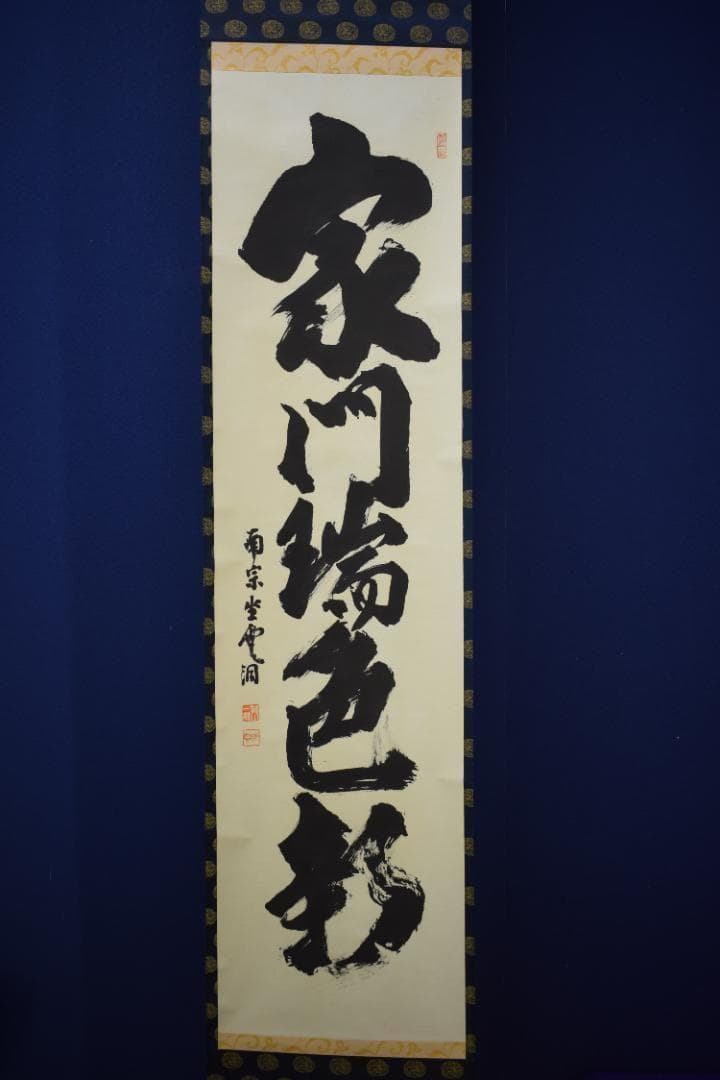 家門瑞色新
南宗坐雲洞